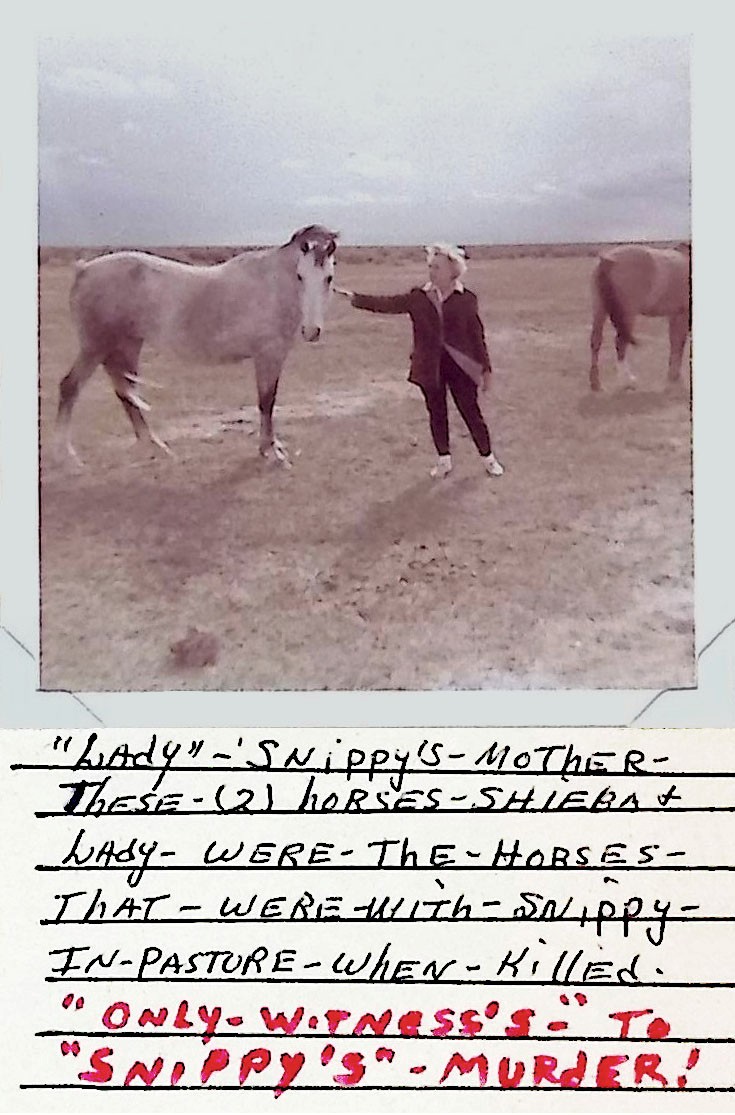 "LAdy" - 'SNippy'S - MOTHER -
ThESE - (2) hORSES - SHIEBA &
LAdy - WERE - ThE - HORSES -
ThAT - WERE - WITh - SNippy -
IN - PASTURE - WhEN - KillEd.
"ONLY - WiTNESS'S -" To
"SNiPPY'S" - MURdER!